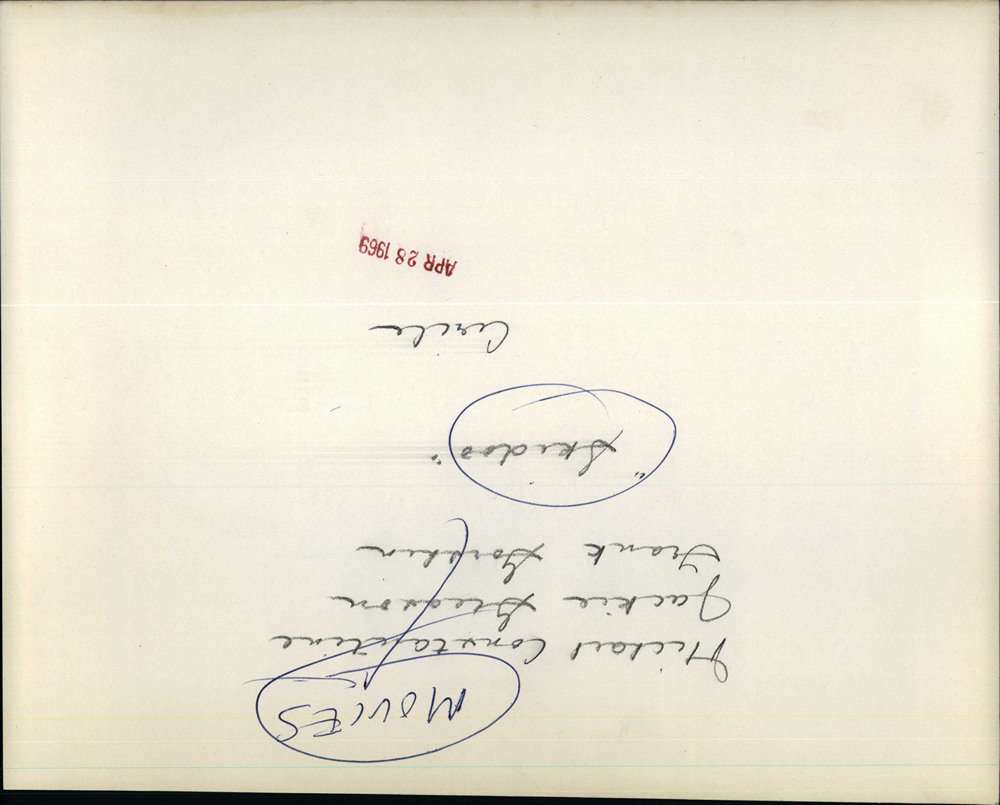 MOVIES
Michael Constantine
Jackie Gleason
Frank Gorshin
"Skidoo"
Circle
APR 28 1969